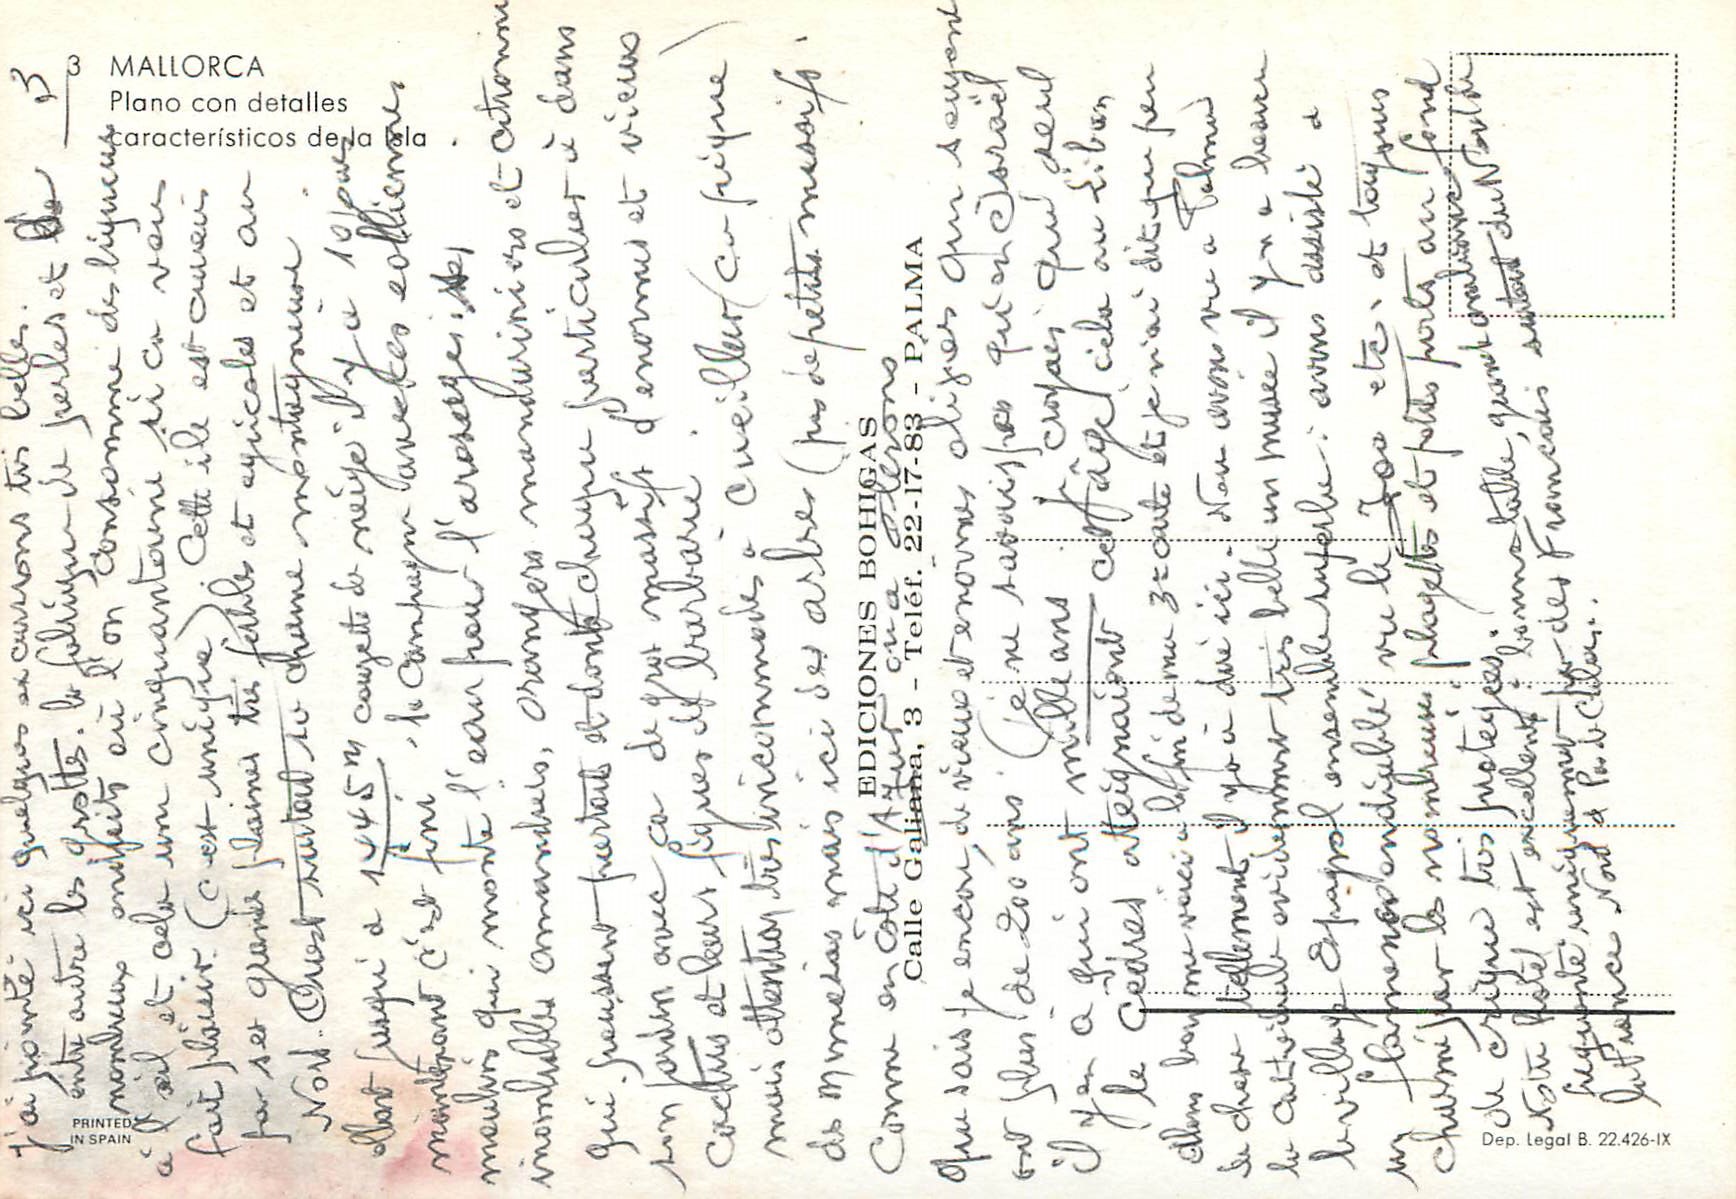 3 MALLORCA
Plano con detalles
característicos de la isla
3
j'ai pointé ici quelques excursions très belles.
entre autre les grottes. la fabrique de perles et
nombreux orifeits où l'on consomme des liqueurs
à l'œil et cela une cinquantaine si ca vous
fait plaisir. (c'est unique) Cette île est curieuse
par ses grandes plaines très fertiles et agricoles et au
Nord. Ouest surtout sa chaine montagneuse.
allant jusqu'à 1445m de neige il y a 10 jours
maintenant c'est fini, la campagne avec ses eoliennes
moulins qui monte l'eau pour l'arosage;
inombrables amandiers, orangers mandariniers et citronniers
qui poussent partout et dont chaque particulier à dans
son jardin avec ca de gros massifs d'enormes et vieux
Cactus et leurs figues de barbarie.
mais attention très incommodes à cueiller (ca pique)
des mimosas mais ici des arbres (pas de petits massifs.
Comme en Côte d'Azur ou a Oleron
EDICIONES BOHIGAS
Calle Galiana, 3 - Teléf. 22-17-83 - PALMA
que sais je encore, de vieux et enormes oliviers qui soyons
ont plus de 200 ans (je ne savais pas qu'en Israël
il y en à qui ont mille ans je croyais que seul
le Cèdres atteignaient cet âge) cela au Liban,
allons bon me voici a la fin de ma 3e carte et je n'ai dit que peu
de chose tellement il y a à dire ici. Nous avons vu a Palma
la cathedrale evidemment très belle un musée il y en a beaucoup
le village Espagnol ensemble superbe: avons assisté a
un flamenco endiablé vu le Zoo etc. et toujours
cheminé par les nombreuses plagettes et petits ports au fond
de crique très protégées.
Notre hotel est excellent; bonne table, grand
frequenté uniquement par des Francais surtout du Nord
la France Nord et Pas de Calais.
PRINTED
IN SPAIN
Dep. Legal B. 22.426-IX